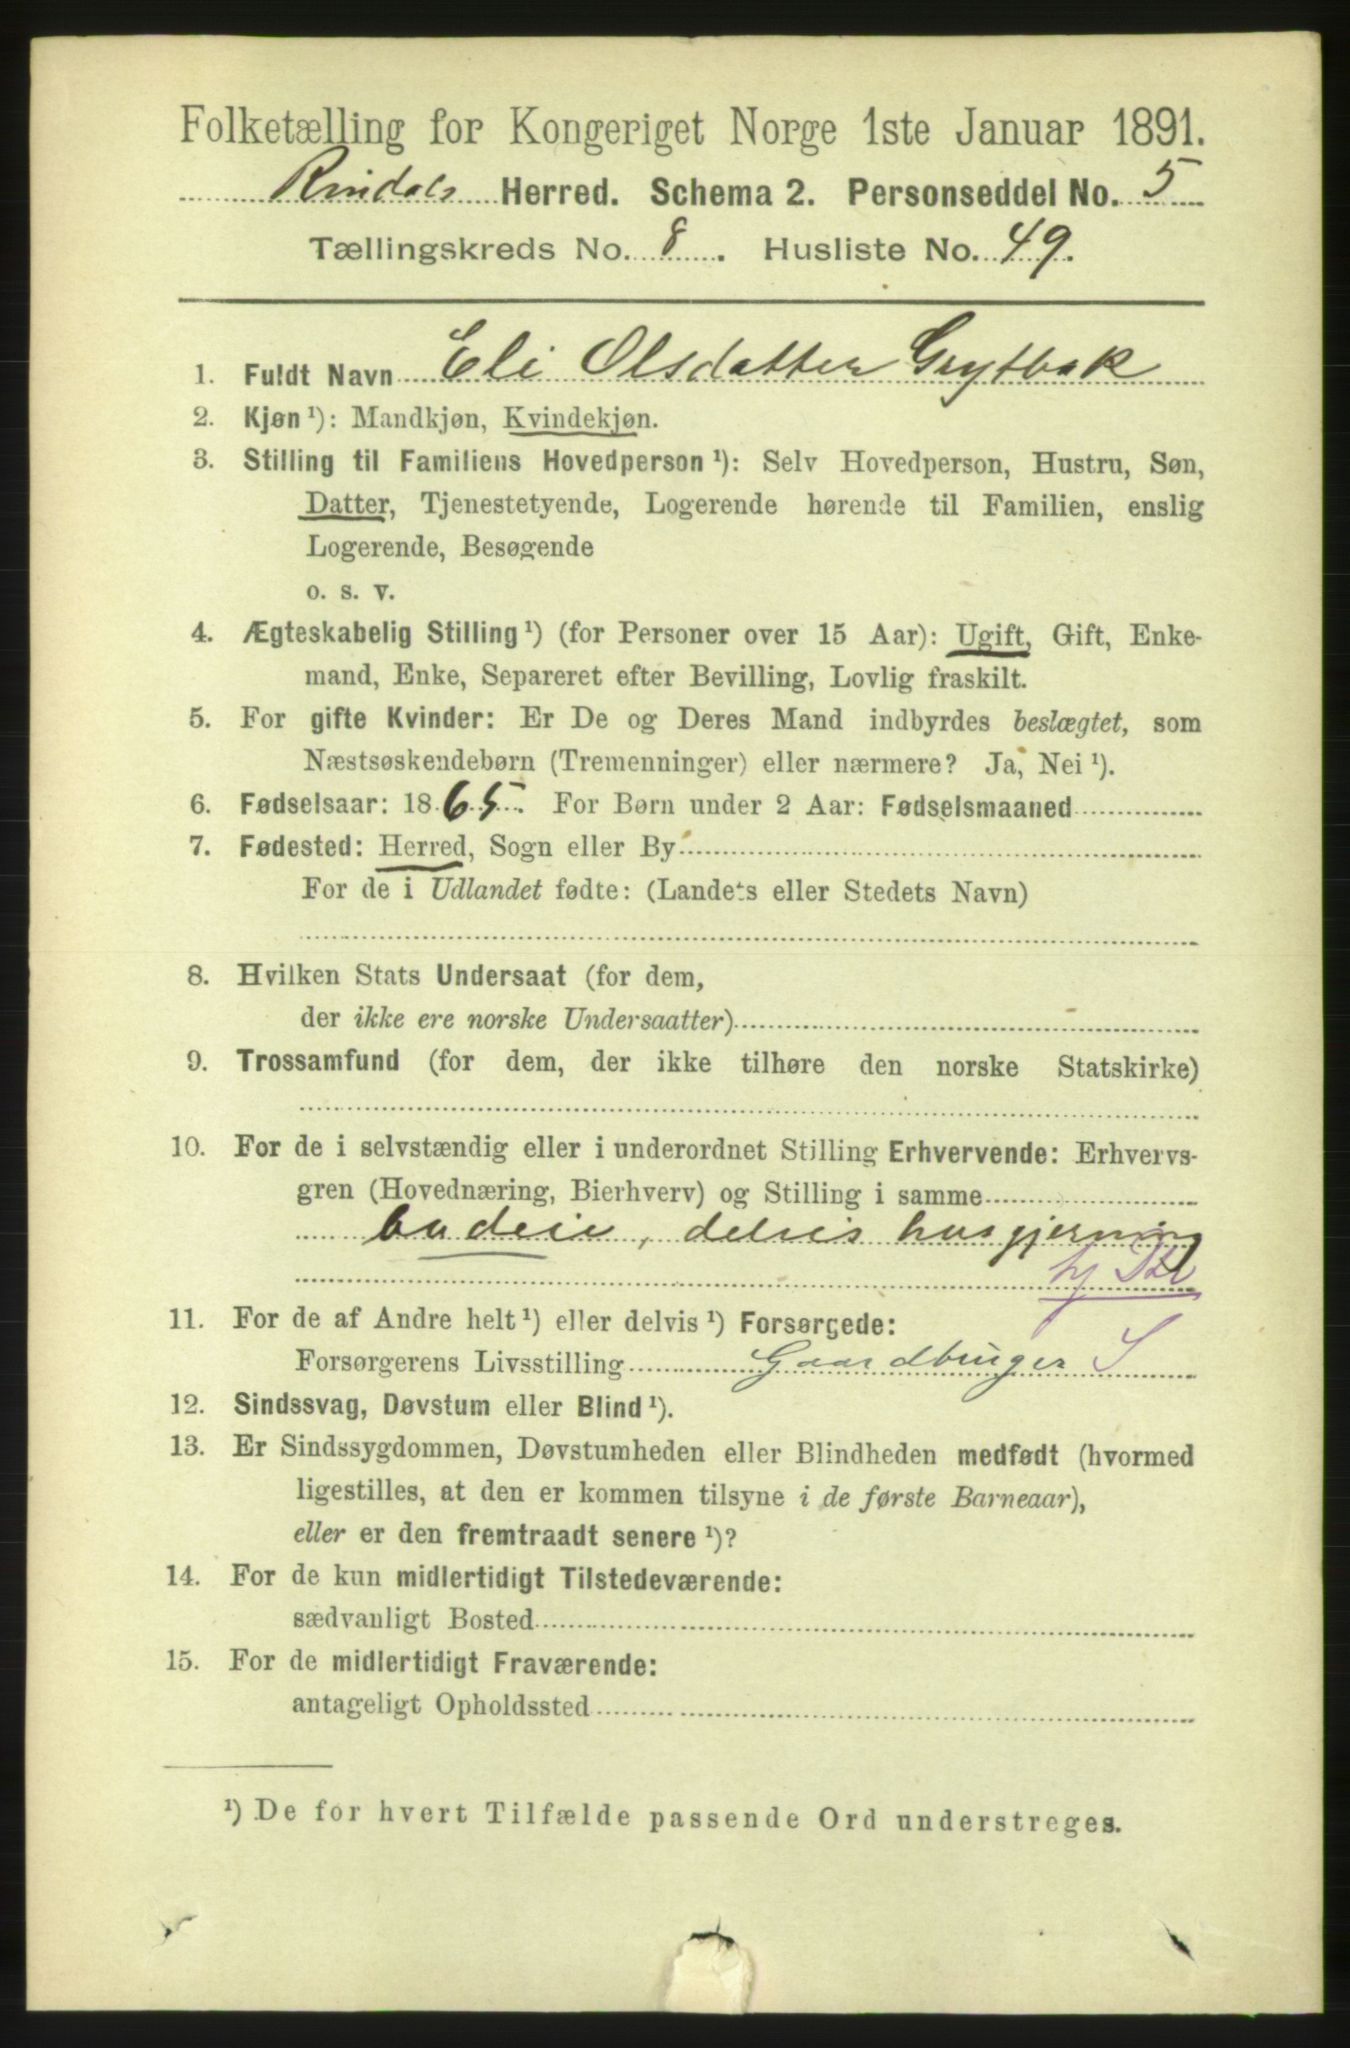 Folketælling for Kongeriget Norge 1ste Januar 1891.
Rindals Herred. Schema 2. Personseddel No. 5
Tællingskreds No. 8. Husliste No. 49.
1. Fuldt Navn Eli Olsdatter Grytbak
2. Kjøn ¹): Mandkjøn, Kvindekjøn.
3. Stilling til Familiens Hovedperson ¹): Selv Hovedperson, Hustru, Søn,
Datter, Tjenestetyende, Logerende hørende til Familien, enslig
Logerende, Besøgende
o. s. v.
4. Ægteskabelig Stilling ¹) (for Personer over 15 Aar): Ugift, Gift, Enke-
mand, Enke, Separeret efter Bevilling, Lovlig fraskilt.
5. For gifte Kvinder: Er De og Deres Mand indbyrdes beslægtet, som
Næstsøskendebørn (Tremenninger) eller nærmere? Ja, Nei ¹).
6. Fødselsaar: 1865. For Børn under 2 Aar: Fødselsmaaned
7. Fødested: Herred, Sogn eller By
For de i Udlandet fødte: (Landets eller Stedets Navn)
8. Hvilken Stats Undersaat (for dem,
der ikke ere norske Undersaatter)
9. Trossamfund (for dem, der ikke tilhøre den norske Statskirke)
10. For de i selvstændig eller i underordnet Stilling Erhvervende: Erhvervs-
gren (Hovednæring, Bierhverv) og Stilling i samme
budeie, delvis husgjerning
11. For de af Andre helt ¹) eller delvis ¹) Forsørgede:
Forsørgerens Livsstilling Gaardbruger S
12. Sindssvag, Døvstum eller Blind ¹).
13. Er Sindssygdommen, Døvstumheden eller Blindheden medfødt (hvormed
ligestilles, at den er kommen tilsyne i de første Barneaar),
eller er den fremtraadt senere ¹)?
14. For de kun midlertidigt Tilstedeværende:
sædvanligt Bosted
15. For de midlertidigt Fraværende:
antageligt Opholdssted
¹) De for hvert Tilfælde passende Ord understreges.